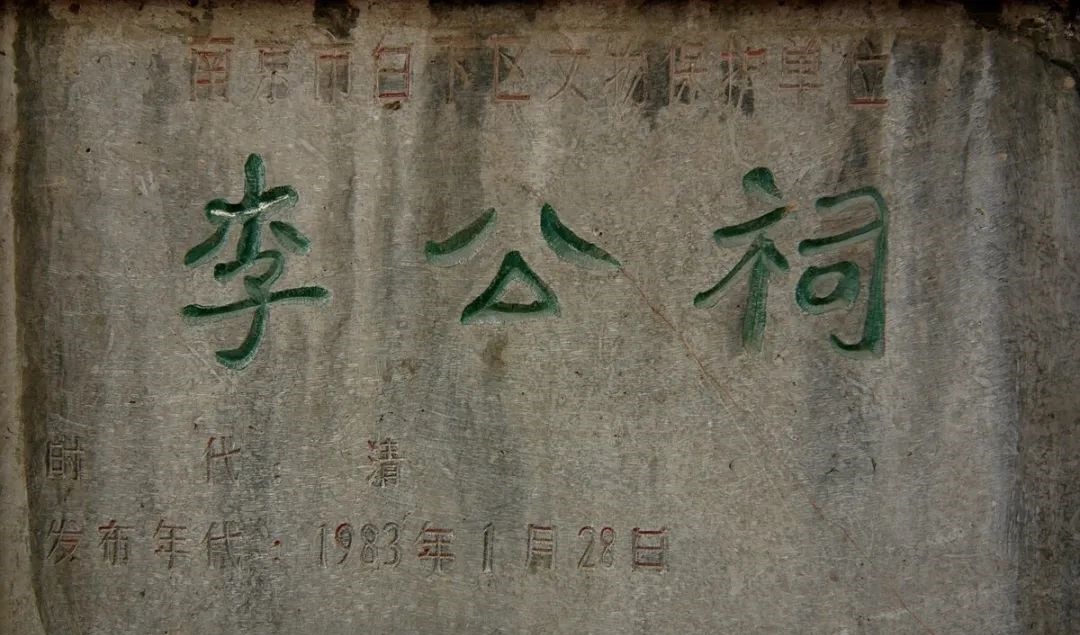 南京市白下区文物保护单位
李公祠
时 代：清
发布年代：1983年1月28日